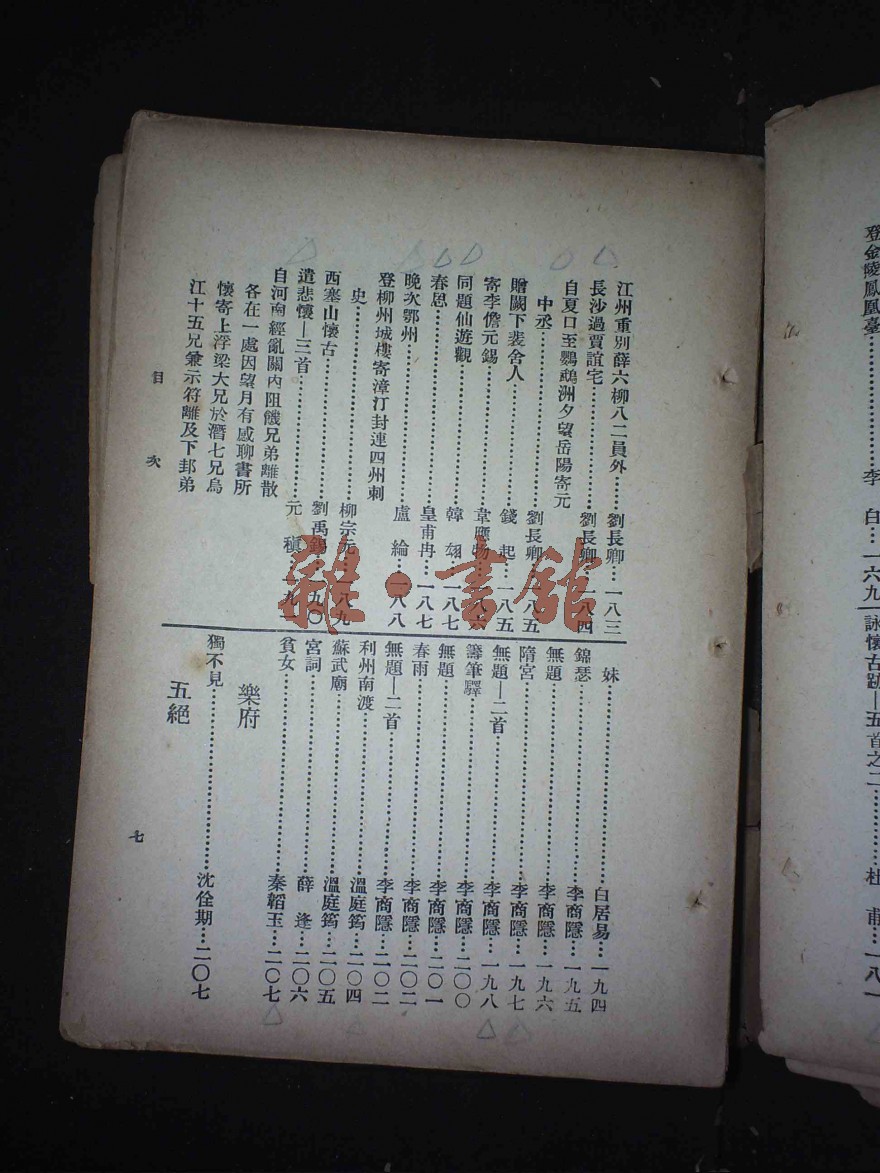 登金陵鳳凰臺……………李　白…一六九
詠懷古跡—五首之二………杜　甫…一八一
江州重別薛六柳八二員外……劉長卿…一八三
長沙過賈誼宅……………劉長卿…一八四
自夏口至鸚鵡洲夕望岳陽寄元
中丞……………劉長卿…一八五
贈闕下裴舍人……………錢　起…一八五
寄李儋元錫……………韋應物…一八六
同題仙遊觀……………韓　翃…一八七
春思……………皇甫冉…一八七
晚次鄂州……………盧　綸…一八八
登柳州城樓寄漳汀封連四州刺
史……………柳宗元…一八九
西塞山懷古……………劉禹錫…一九〇
遣悲懷—三首……………元　稹…一九一
自河南經亂關內阻饑兄弟離散
各在一處因望月有感聊書所
懷寄上浮梁大兄於潛七兄烏
江十五兄兼示符離及下邽弟
妹……………白居易…一九四
錦瑟……………李商隱…一九五
無題……………李商隱…一九六
隋宮……………李商隱…一九七
無題—二首……………李商隱…一九八
籌筆驛……………李商隱…二〇〇
無題……………李商隱…二〇一
春雨……………李商隱…二〇二
無題—二首……………李商隱…二〇二
利州南渡……………溫庭筠…二〇四
蘇武廟……………溫庭筠…二〇五
宮詞……………薛　逢…二〇六
貧女……………秦韜玉…二〇七
樂府
獨不見……………沈佺期…二〇七
五絕
目次
七
雜·書館